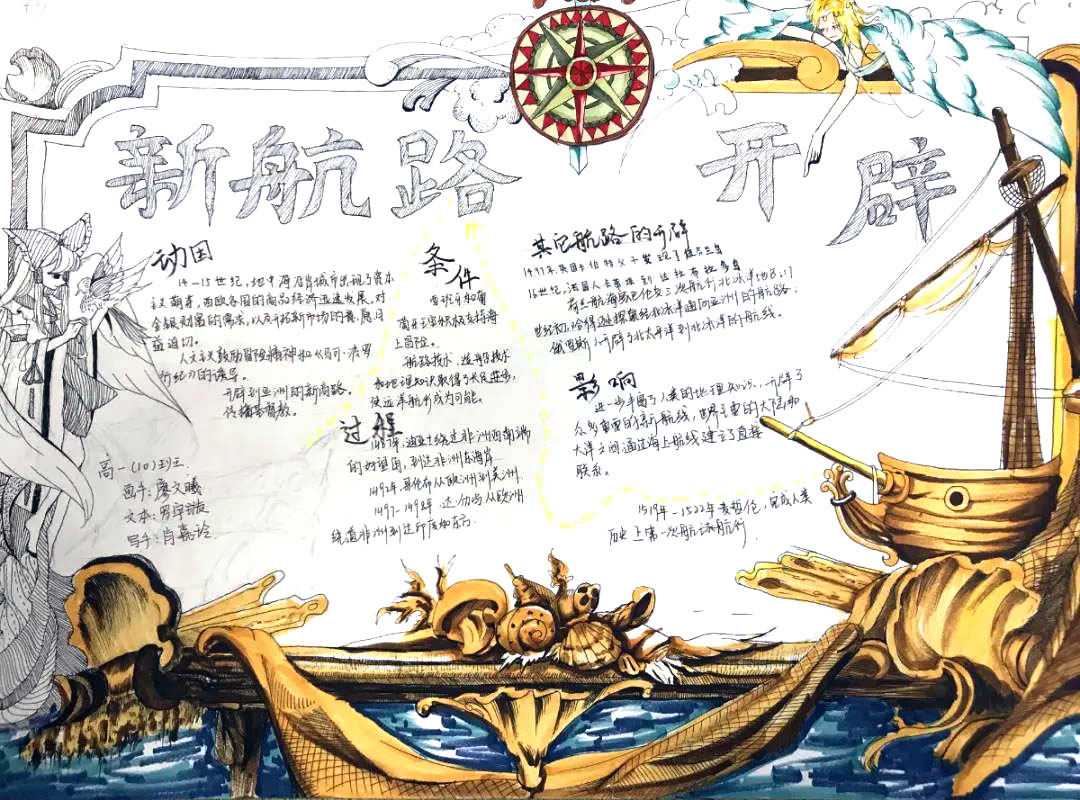 新航路 开辟
动因
14-15世纪，地中海沿岸城市出现了资本
主义萌芽，西欧各国的商品经济迅速发展，对
金银财富的需求，以及开拓新市场的意愿日
益迫切。
人文主义鼓励冒险精神和《马可·波罗
行纪》的诱导。
开辟到亚洲的新商路。
传播基督教。
条件
西班牙和葡
萄牙王室积极支持海
上冒险。
航路技术，造船技术
和地理知识取得了长足进步，
使远洋航行成为可能。
过程
迪亚士绕过非洲西南端
的好望角，到达非洲东海岸
1492年，哥伦布从欧洲到美洲
1497-1498年，达·伽马从欧洲
绕道非洲到达印度的东方。
其它航路的开辟
1497年，英国卡伯特父子发现了纽芬兰岛
16世纪，法国人卡蒂埃到达拉布拉多角
荷兰航海家巴伦支三次航行北冰洋地区，17
世纪初，哈得逊探索经北冰洋通向亚洲的航路。
俄罗斯人开辟了北太平洋到北冰洋的航线。
影响
进一步丰富了人类的地理知识，开辟了
众多重要的新航线，世界主要的大陆和
大洋之间通过海上航线建立了直接
联系。
1519年-1522年麦哲伦，完成人类
历史上第一次环球航行.
高一(10)班
画手：廖文曦
文本：罗宇
写手：肖嘉玲